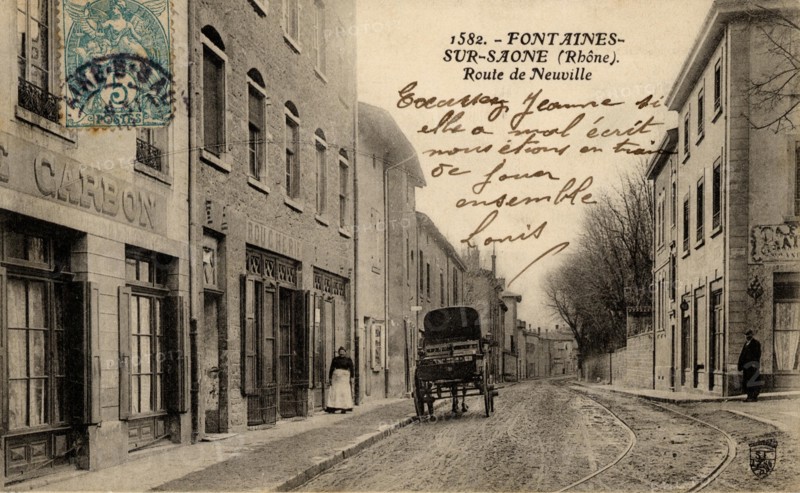 1582. - FONTAINES-
SUR-SAONE (Rhône).
Route de Neuville
Jeanne si
elle a mal écrit
nous étions en train
de jouer
ensemble
Louis
POSTES
CARBON
BOUCHERIE
TABAC
12